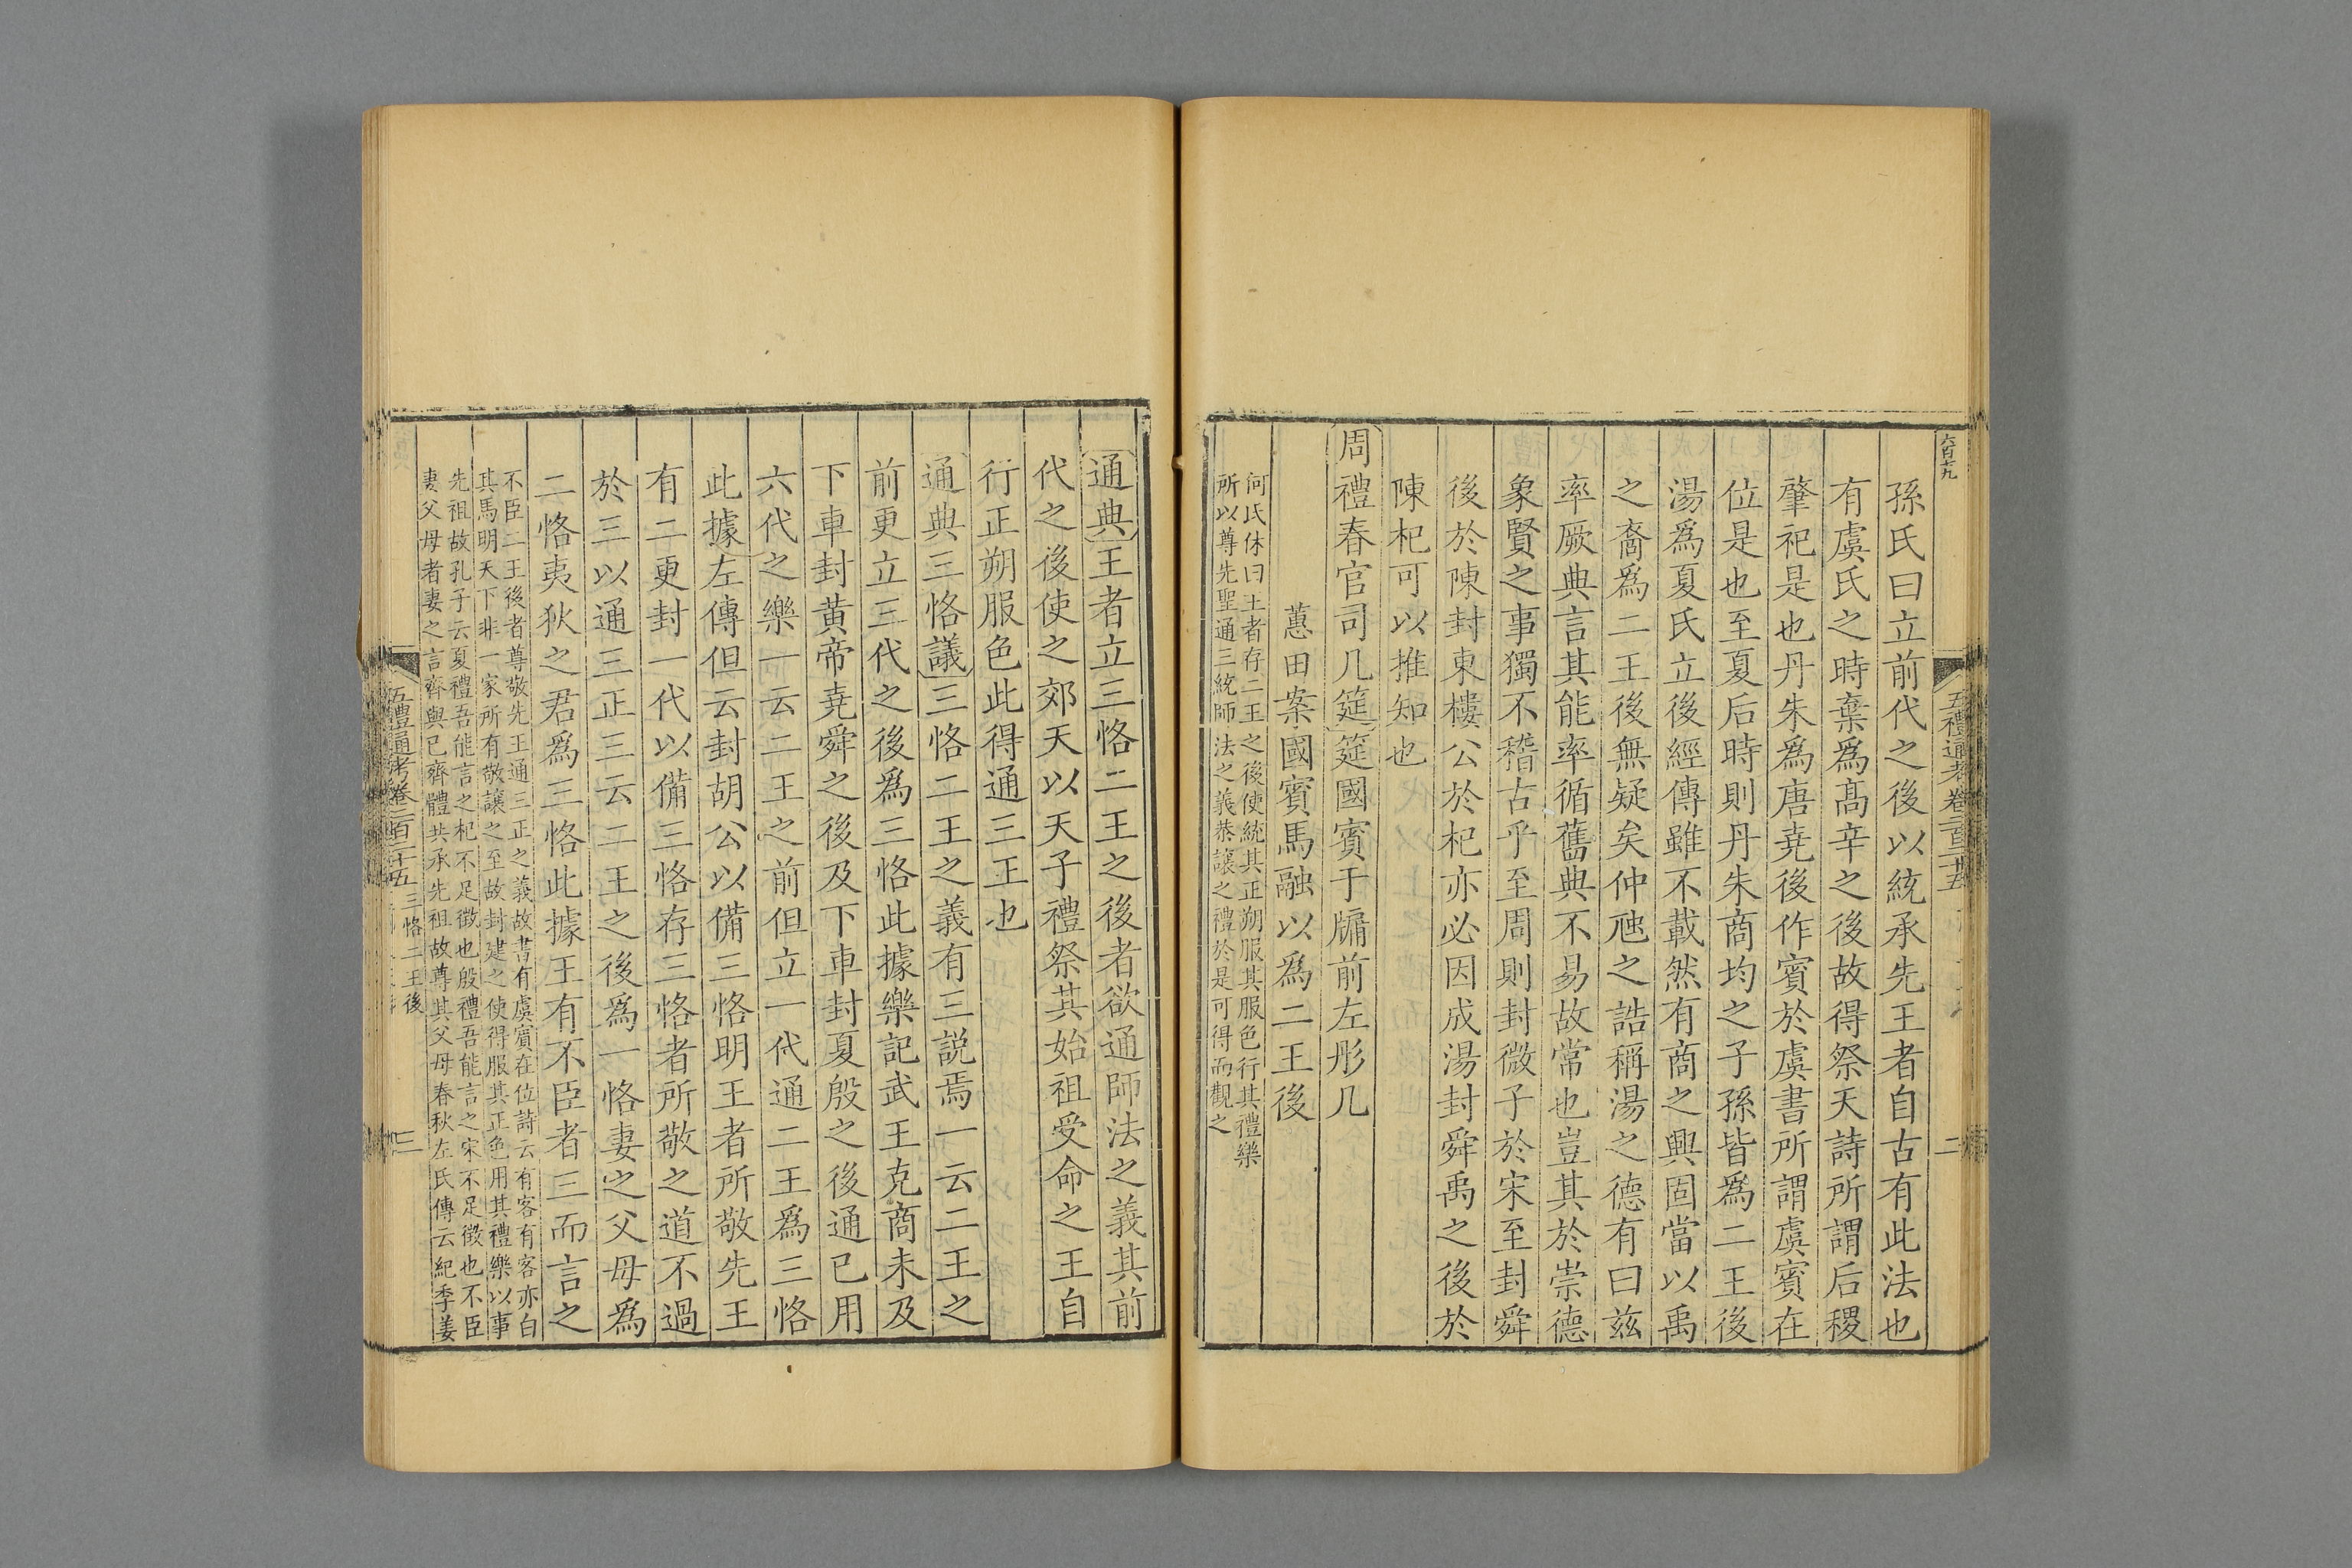 六百十九
五禮通考卷二百二十五
二
孫氏曰立前代之後以統承先王者自古有此法也
有虞氏之時棄爲髙辛之後故得祭天詩所謂后稷
肇祀是也丹朱爲唐堯後作賓於虞書所謂虞賓在
位是也至夏后時則丹朱商均之子孫皆爲二王後
湯爲夏氏立後經傳雖不載然有商之興固當以禹
之裔爲二王後無疑矣仲虺之誥稱湯之德有曰兹
率厥典言其能率循舊典不易故常也豈其於崇德
象賢之事獨不稽古乎至周則封微子於宋至封舜
後於陳封東樓公於杞亦必因成湯封舜禹之後於
陳杞可以推知也
周禮春官司几筵筵國賓于牖前左彤几
蕙田案國賓馬融以爲二王後
何氏休曰王者存二王之後使統其正朔服其服色行其禮樂
所以尊先聖通三統師法之義恭讓之禮於是可得而觀之
通典王者立三恪二王之後者欲通師法之義其前
代之後使之郊天以天子禮祭其始祖受命之王自
行正朔服色此得通三正也
通典三恪議三恪二王之義有三説焉一云二王之
前更立三代之後爲三恪此據樂記武王克商未及
下車封黄帝堯舜之後及下車封夏殷之後通已用
六代之樂一云二王之前但立一代通二王爲三恪
此據左傳但云封胡公以備三恪明王者所敬先王
有二更封一代以備三恪存三恪者所敬之道不過
於三以通三正三云二王之後爲一恪妻之父母爲
二恪夷狄之君爲三恪此據王有不臣者三而言之
不臣二王後者尊敬先王通三正之義故書有虞賓在位詩云有客有客亦白
其馬明天下非一家所有敬讓之至故封建之使得服其正色用其禮樂以事
先祖故孔子云夏禮吾能言之杞不足徵也殷禮吾能言之宋不足徵也不臣
妻父母者妻之言齊與已齊體共承先祖故尊其父母春秋左氏傳云紀季姜
五禮通考卷二百二十五
三恪二王後
三